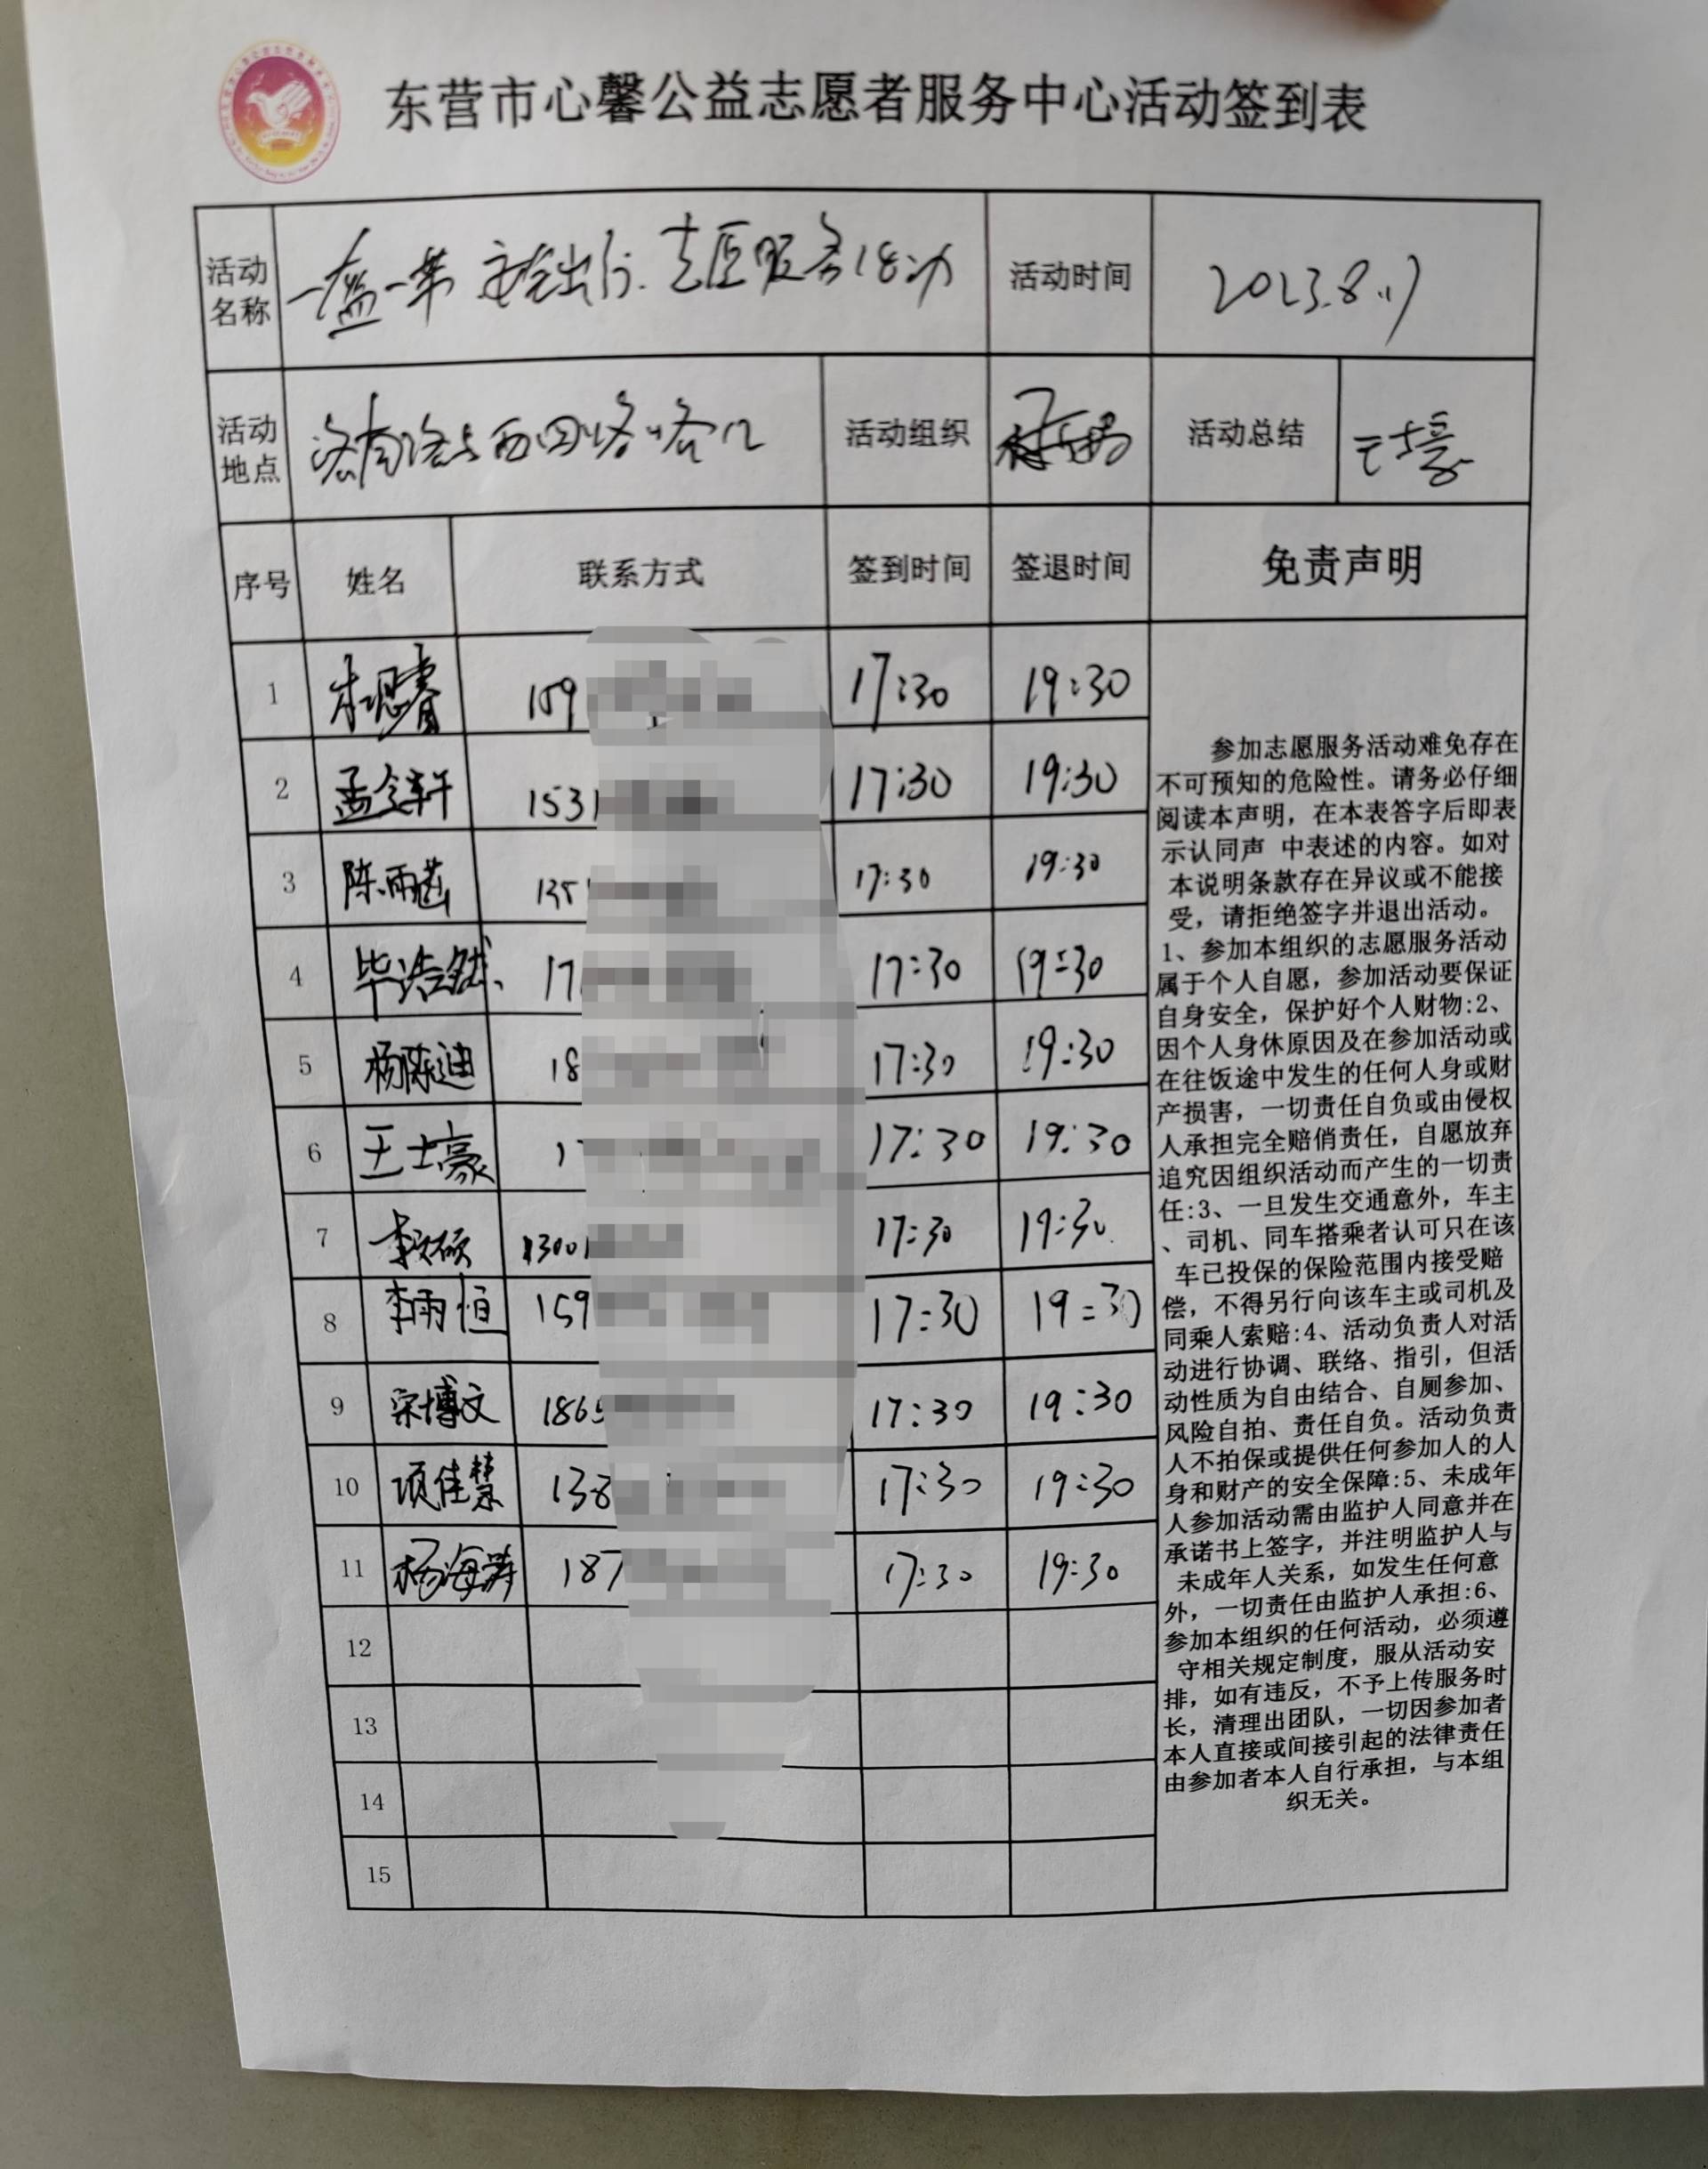 东营市心馨公益志愿者服务中心活动签到表
活动名称 一盔一带 安全出行 志愿服务活动 活动时间 2023.8.
活动地点 济南路与西四路路口 活动组织 活动总结 王士豪
序号 姓名 联系方式 签到时间 签退时间 免责声明
1 159 17:30 19:30
2 1531 17:30 19:30
3 陈雨菡 135 17:30 19:30
4 毕浩然 17 17:30 19:30
5 杨陈迪 18 17:30 19:30
6 王士豪 17 17:30 19:30
7 1300 17:30 19:30
8 李雨恒 159 17:30 19:30
9 宋博文 1865 17:30 19:30
10 项佳慧 138 17:30 19:30
11 杨海涛 187 17:30 19:30
12
13
14
15
参加志愿服务活动难免存在
不可预知的危险性。请务必仔细
阅读本声明，在本表答字后即表
示认同声 中表述的内容。如对
本说明条款存在异议或不能接
受，请拒绝签字并退出活动。
1、参加本组织的志愿服务活动
属于个人自愿，参加活动要保证
自身安全，保护好个人财物:2、
因个人身休原因及在参加活动或
在往饭途中发生的任何人身或财
产损害，一切责任自负或由侵权
人承担完全赔俏责任，自愿放弃
追究因组织活动而产生的一切责
任:3、一旦发生交通意外，车主
、司机、同车搭乘者认可只在该
车已投保的保险范围内接受赔
偿，不得另行向该车主或司机及
同乘人索赔:4、活动负责人对活
动进行协调、联络、指引，但活
动性质为自由结合、自厕参加、
风险自拍、责任自负。活动负责
人不拍保或提供任何参加人的人
身和财产的安全保障:5、未成年
人参加活动需由监护人同意并在
承诺书上签字，并注明监护人与
未成年人关系，如发生任何意
外，一切责任由监护人承担:6、
参加本组织的任何活动，必须遵
守相关规定制度，服从活动安
排，如有违反，不予上传服务时
长，清理出团队，一切因参加者
本人直接或间接引起的法律责任
由参加者本人自行承担，与本组
织无关。